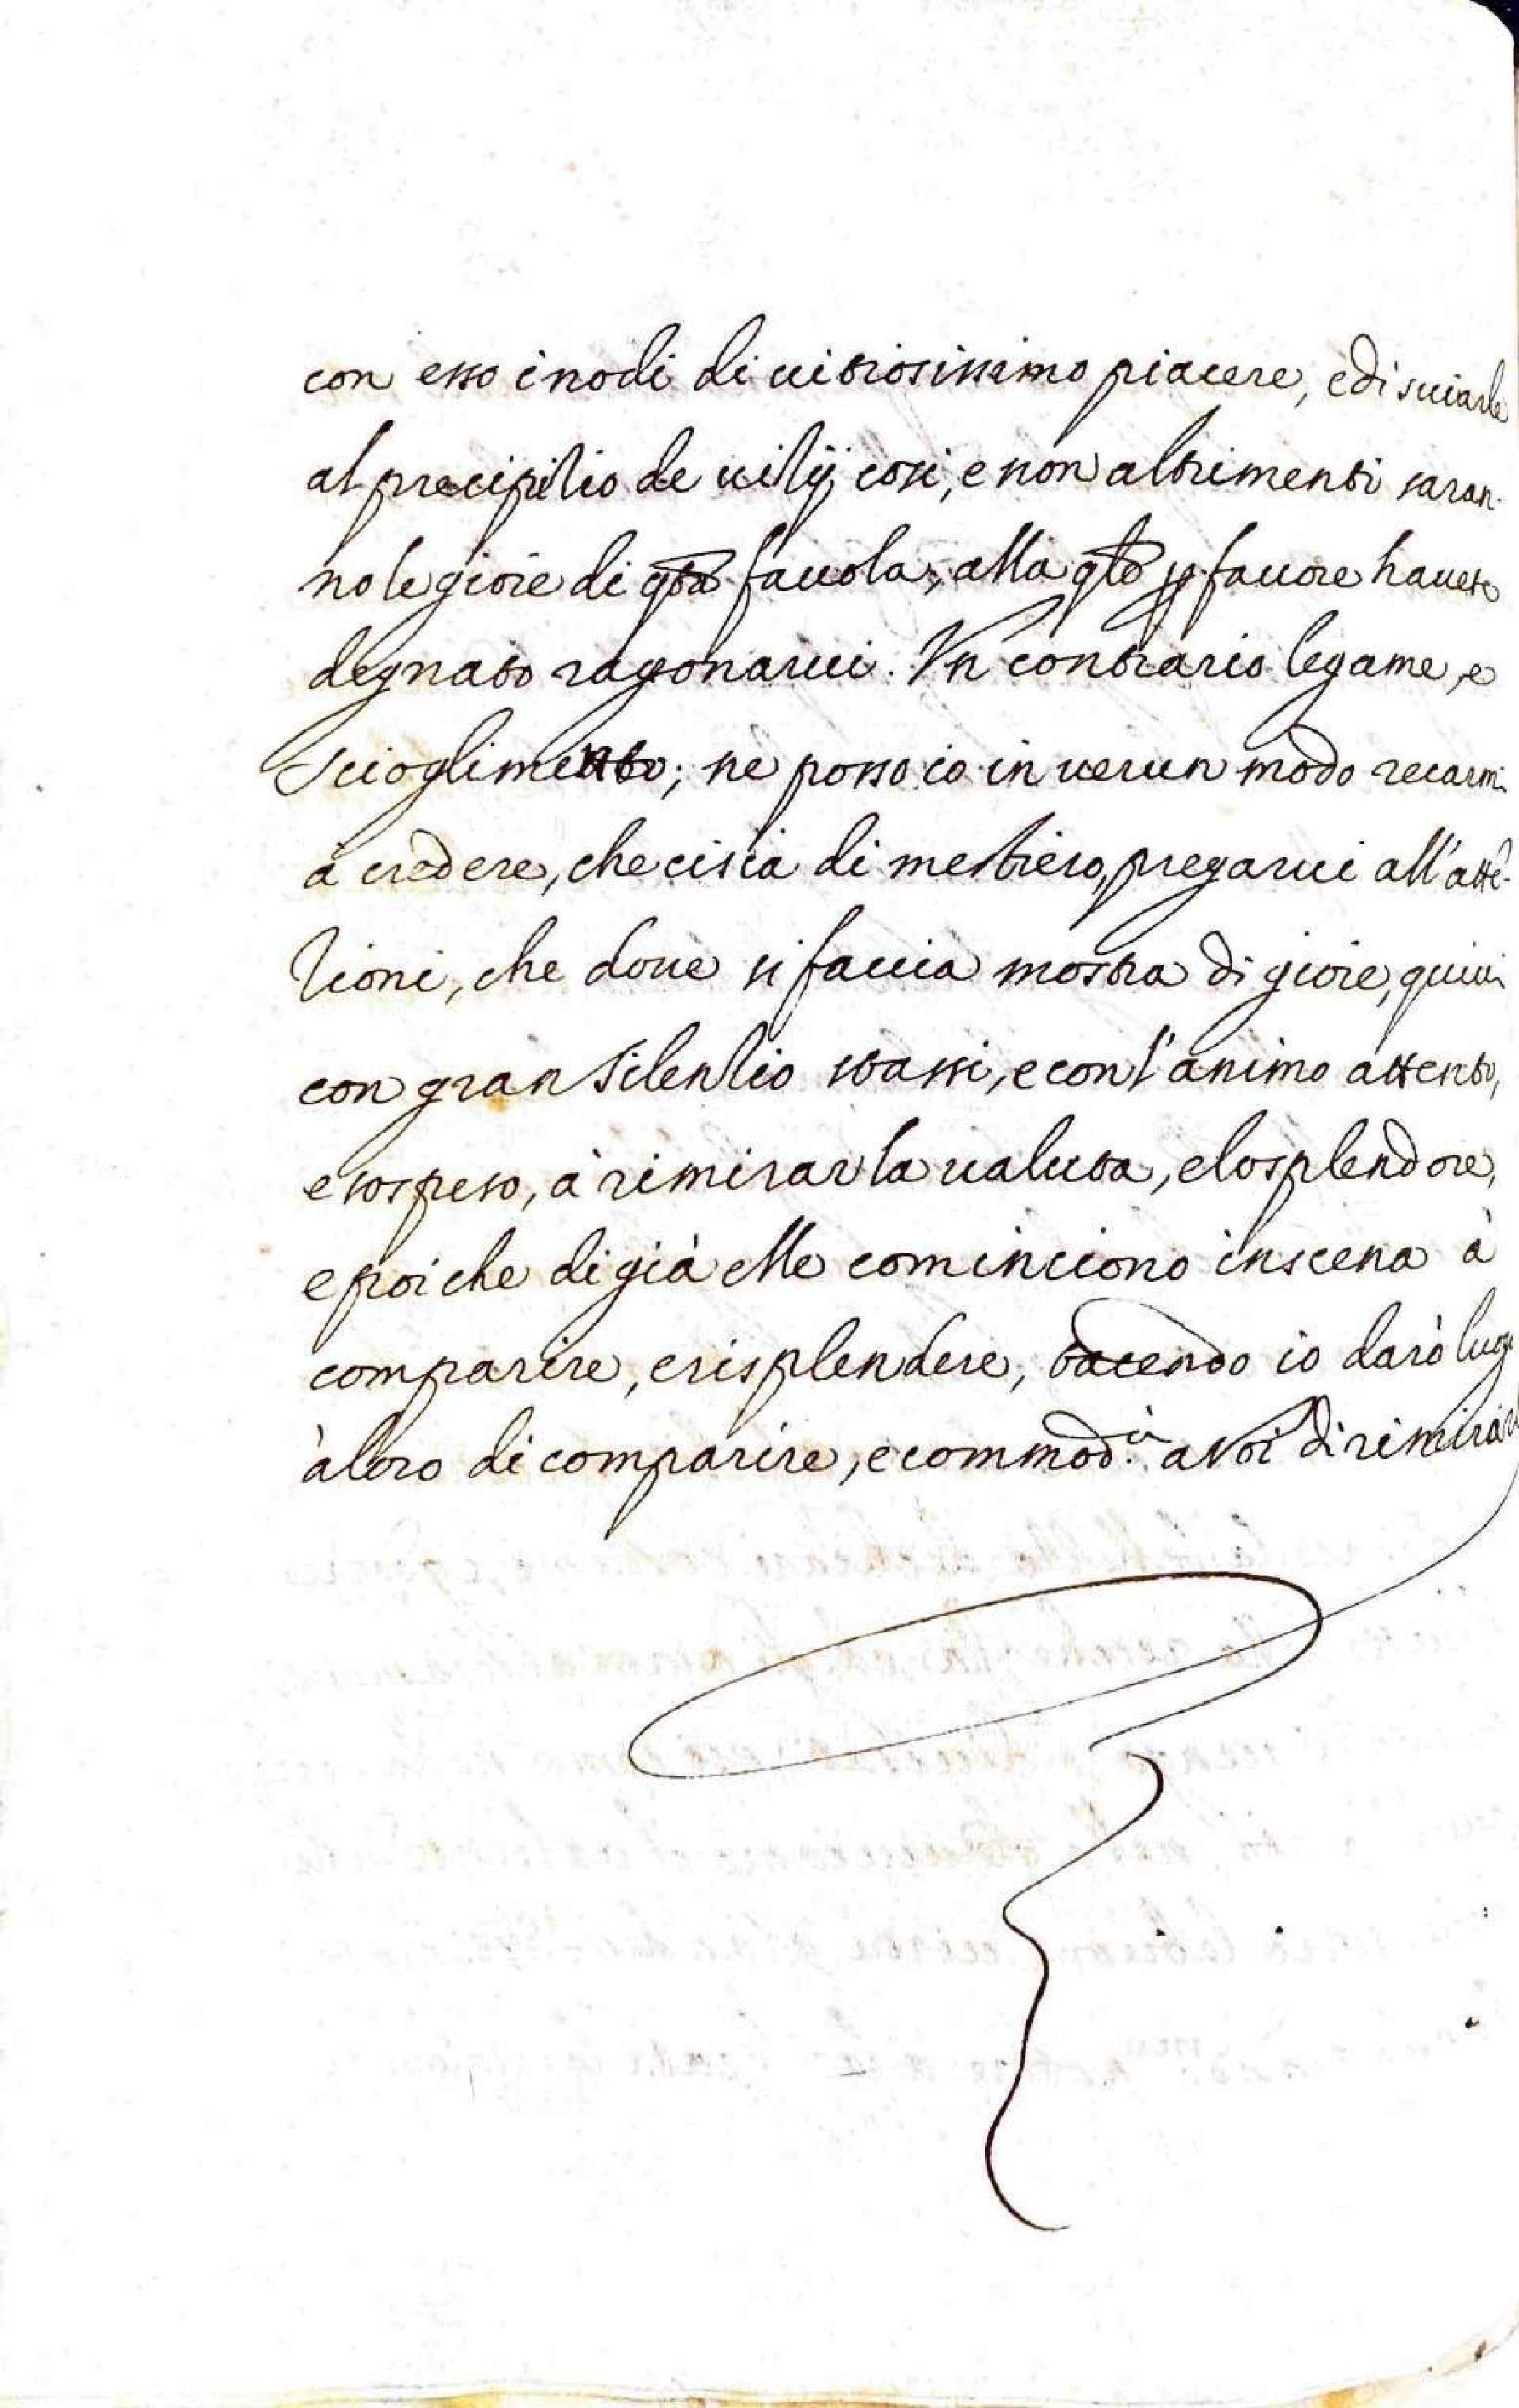 con esso i nodi di uitiosissimo piacere, e di suiarle
al precipitio de uitij, cosi, e non altrimenti saran-
no le gioie di qsta fauola, alla qle p fauore hauete
degnato ragonarui. Vn contrario legame, e
scioglimento; ne posso io in uerun modo recarmi
à credere, che ci sia di mestiero, pregarui all'attē-
tioni, che doue si faccia mostra di gioie, quiui
con gran silentio stassi, e con l'animo attento,
e sospeso, à rimirar la ualuta, e lo splendore,
e poi che di già elle cominciono in scena à
comparire, e risplendere, tacendo io darò luogo
à altro di comparire, e commod.ià a voi di rimirarl